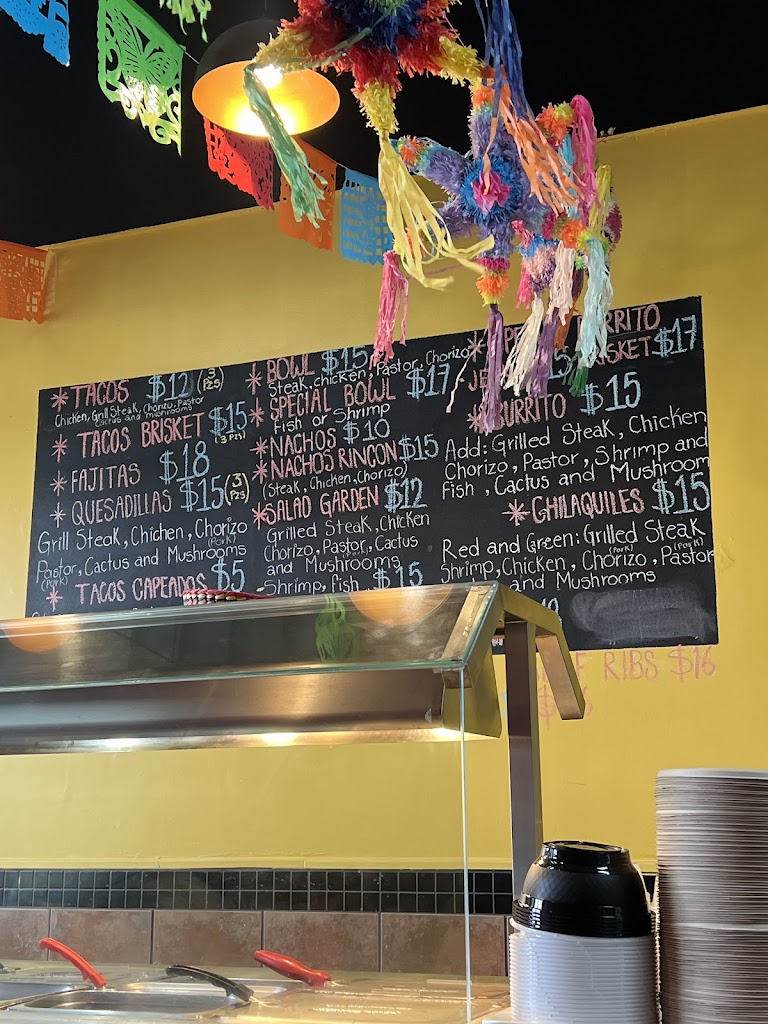 * TACOS $12 (3 Pzs)
Chicken, Grill Steak, Chorizo, Pastor
Cactus and mushrooms
* TACOS BRISKET $15 (3 Pzs)
* FAJITAS $18
* QUESADILLAS $15 (3 Pzs)
Grill Steak, Chichen, Chorizo
(Pork)
Pastor, Cactus and Mushrooms
(Pork)
* TACOS CAPEADOS $5
* BOWL $15
Steak, chicken, Pastor, Chorizo
* SPECIAL BOWL $17
Fish or Shrimp
* NACHOS $10
* NACHOS RINCON $15
(Steak, Chicken, Chorizo)
* SALAD GARDEN $12
Grilled Steak, Chicken
Chorizo, Pastor, Cactus
and Mushrooms
Shrimp, Fish $15
* BURRITO
$17
* BURRITO $15
Add: Grilled Steak, Chicken
Chorizo, Pastor, Shrimp and
Fish, Cactus and Mushroom
* CHILAQUILES $15
Red and Green: Grilled Steak
Shrimp, Chicken, Chorizo, Pastor
(Pork) (Pork)
and Mushrooms
RIBS $16